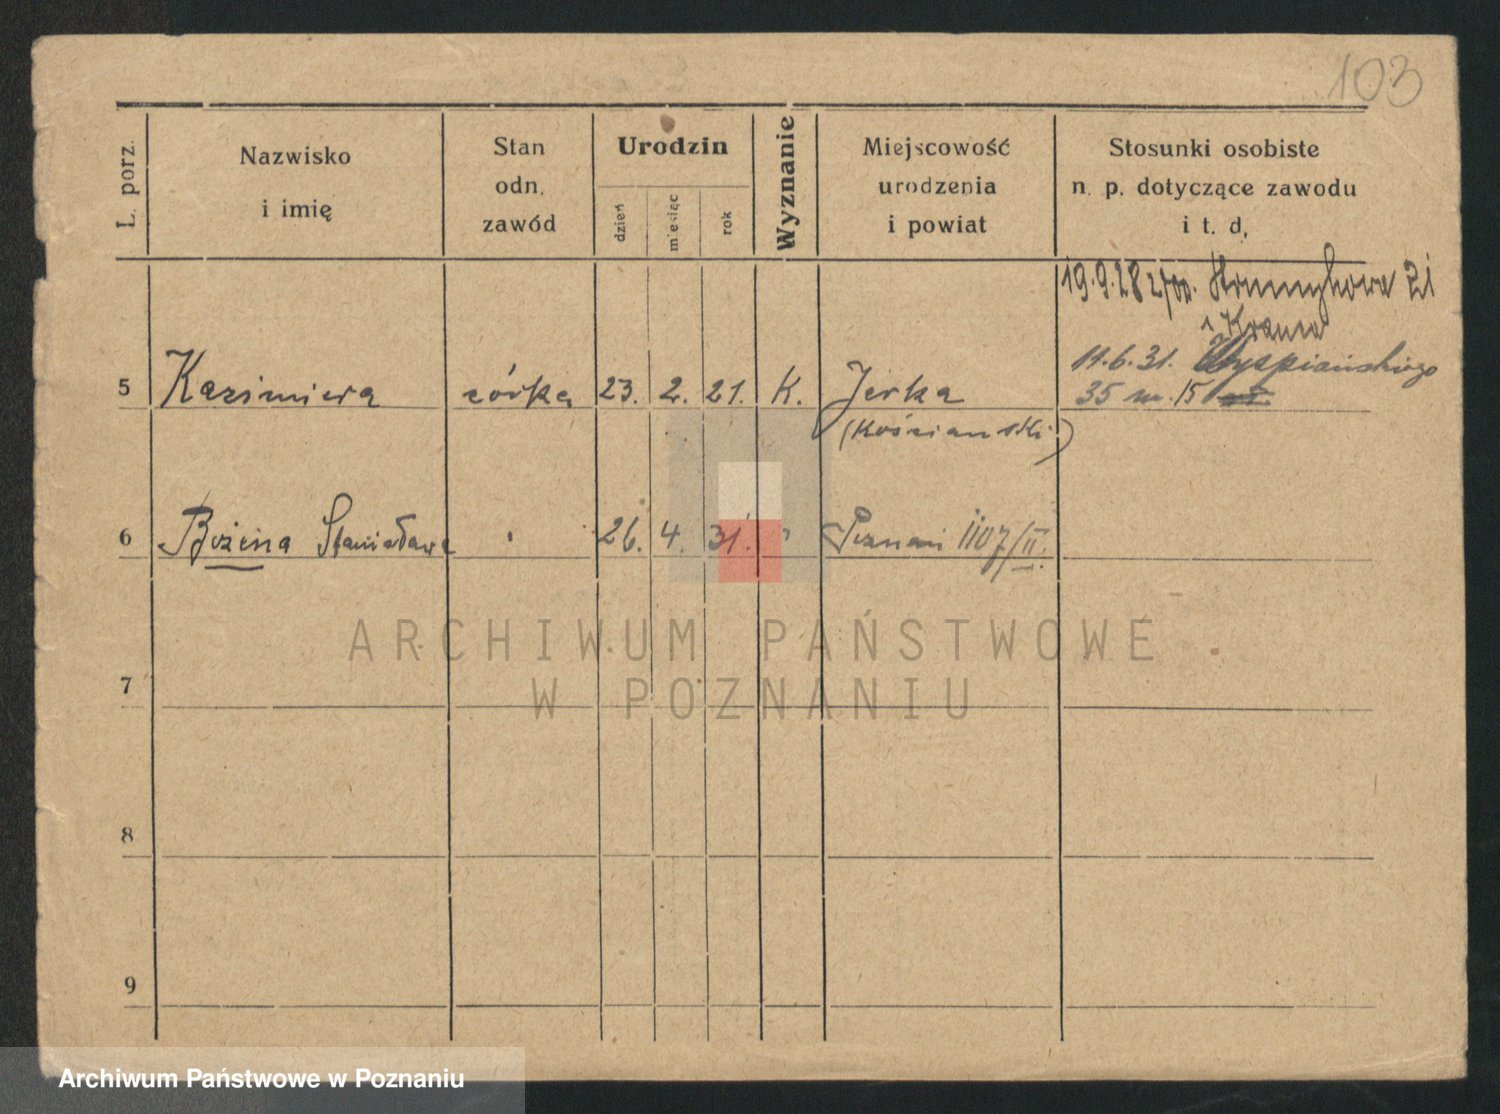 103
L. porz.
Nazwisko
i imię
Stan
odn.
zawód
Urodzin
dzień
miesiąc
rok
Wyznanie
Miejscowość
urodzenia
i powiat
Stosunki osobiste
n. p. dotyczące zawodu
i t. d,
19.9.28 21
11.6.31. Wyspiańskiego
35 m. 15
5 Kazimiera córka 23. 2. 21. K. Jerka
(Kościański)
6 Bożena Stanisława 26. 4. 31. Poznań 1107/II.
7
8
9
ARCHIWUM PAŃSTWOWE
W POZNANIU
Archiwum Państwowe w Poznaniu